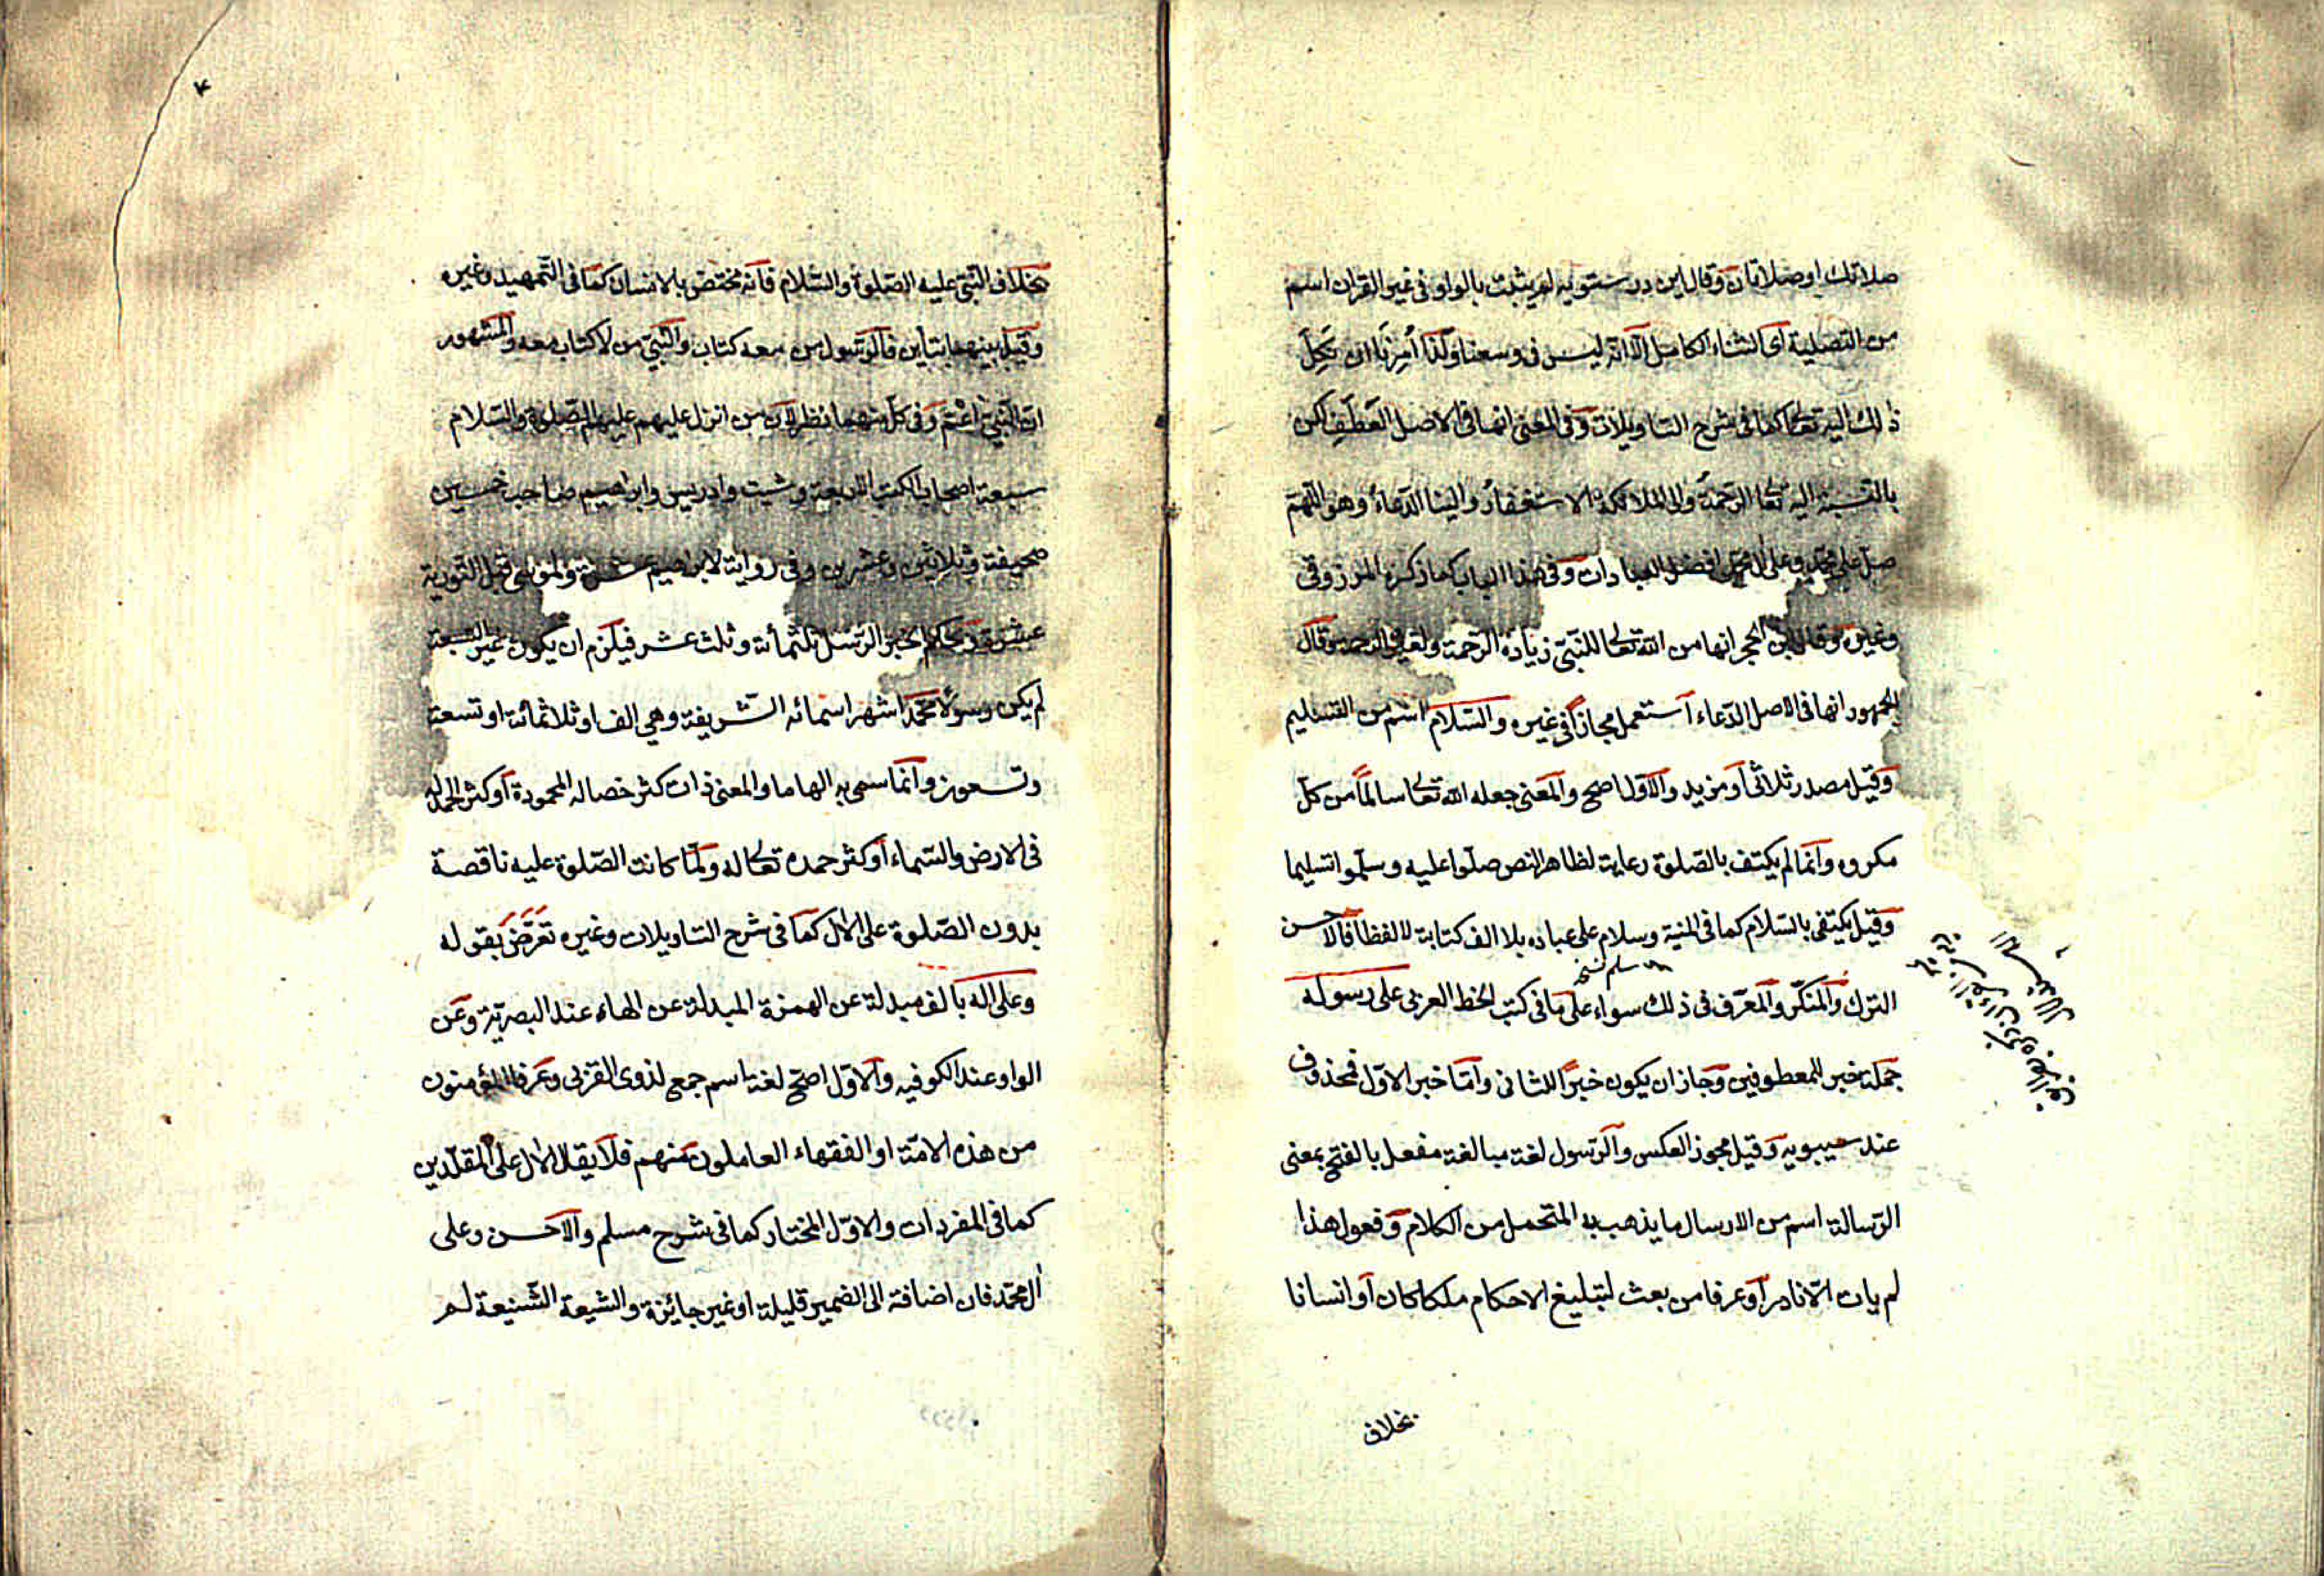 صلاتك او صلاتان وقال ابن درستويه لم يثبت بالواو فى غير القران اسم
من التصلية اى الثناء الكامل الا انه ليس فى وسعنا ولذا أمرنا ان نكل
ذلك اليه تعالى كما فى شرح التاويلات وفى المغنى انها فى الاصل العطف لكن
بالنسبة اليه تعالى الرحمة والى الملائكة الاستغفار والينا الدعاء وهو اللهم
صل على محمد وعلى ال محمد افضل العبادات وفى هذا الباب كما ذكره المرزوقى
وغيره وقال ابن الحجر انها من الله تعالى للنبى زيادة الرحمة ولغيره الرحمة وقال
الجمهور انها فى الاصل الدعاء استعمل مجازا فى غيره والسلام اسم من التسليم
وقيل مصدر ثلاثى او مزيد والاول اصح والمعنى جعله الله تعالى سالما من كل
مكروه وانما لم يكتف بالصلوة رعاية لظاهر النص صلوا عليه وسلموا تسليما
وقيل يكتفى بالسلام كما فى المنية وسلام على عباده بلا الف كتابة لا لفظا فالاحسن
الترك والمنكر والمعرف فى ذلك سواء على ما فى كتب الخط العربى على رسوله
جملة خبر المعطوفين وجاز ان يكون خبرا للثانى واما خبر الاول فمحذوف
عند سيبويه وقيل مجوز العكس والرسول لغة مبالغة مفعل بالفتح بمعنى
الرسالة اسم من الارسال ما يذهب به المتحمل من الكلام وفعول هذا
لم يات الا نادرا وعرفا من بعث لتبليغ الاحكام ملكا كان او انسانا
بخلاف
٤
بخلاف النبى عليه الصلوة والسلام فانه مختص بالانسان كما فى التمهيد وغيره
وقيل بينهما تباين فالرسول من معه كتاب والنبى من لا كتاب معه والمشهور
ان النبى اعم وفى كل منهما نظر لان من انزل عليهم عليهم الصلوة والسلام
سبعة اصحاب الكتب الاربعة وشيت وادريس وابراهيم صاحب خمسين
صحيفة وثلاثين وعشرين وفى رواية لابراهيم عشرة ولموسى قبل التورية
عشرة وبحكم الخبر الرسل ثلثمائة وثلث عشر فيلزم ان يكون غير السبعة
لم يكن رسولا محمد اشهر اسمائه الشريفة وهى الف او ثلاثمائة او تسعة
وتسعون وانما سمى به الهاما والمعنى ذات كثر خصاله المحمودة او كثر الحمد له
فى الارض والسماء او كثر حمده تعالى له ولما كانت الصلوة عليه ناقصة
بدون الصلوة على الال كما فى شرح التاويلات وغيره تعرض بقوله
وعلى اله بالف مبدلة عن الهمزة المبدلة عن الهاء عند البصرية وعن
الواو عند الكوفيه والاول اصح لغة اسم جمع لذوى القربى وعرفا المؤمنون
من هذه الامة او الفقهاء العاملون منهم فلا يقال الال على المقلدين
كما فى المفردات والاول المختار كما فى شرح مسلم والاحسن وعلى
ال محمد فان اضافته الى الضمير قليلة او غير جائزة والشيعة الشنيعة لم